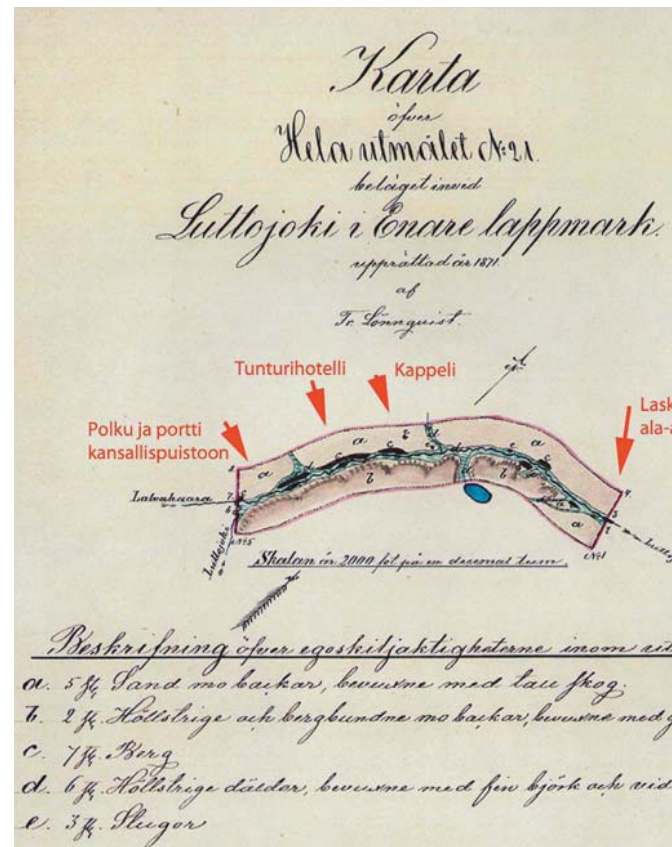 Karta
öfver
Hela utmålet No: 21.
beläget invid
Luttojoki i Enare lappmark.
upprättad år 1871.
af
Fr. Lönnquist.
Tunturihotelli
Kappeli
Polku ja portti
kansallispuistoon
Lask
ala-a
Latvahaara
Luttojoki
Skalan är 2000 fot på en decemal tum.
Beskrifning öfver egoskiljaktigheterne inom
a. 5 Sand mo backar, bevuxne med tall skog.
b. 2 Höllstrige och bergbundne mo backar, bevuxne med
c. 7 Berg
d. 6 Höllstrige däldar, bevuxne med fin björk och vid
e. 3 Slugor